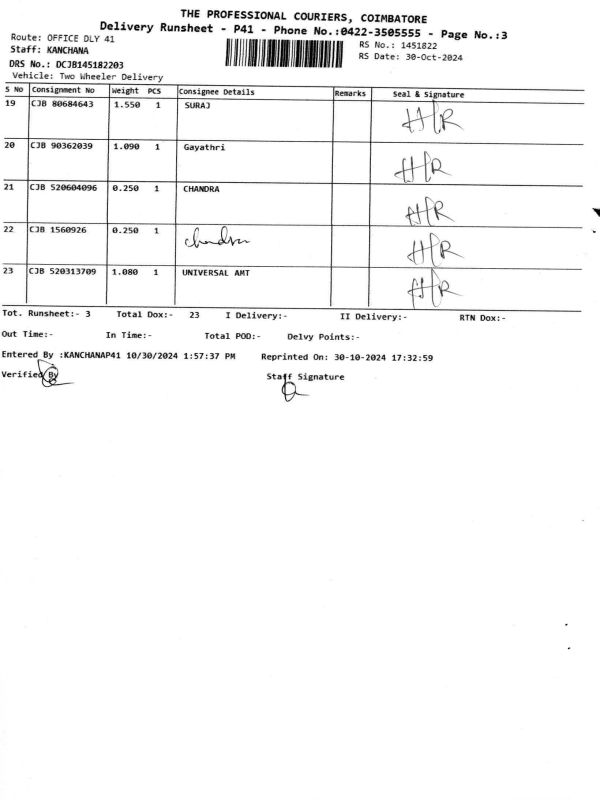 THE PROFESSIONAL COURIERS, COIMBATORE
Delivery Runsheet - P41 - Phone No.:0422-3505555 - Page No.:3
Route: OFFICE DLY 41 RS No.: 1451822
Staff: KANCHANA RS Date: 30-Oct-2024
DRS No.: DCJB145182203
Vehicle: Two Wheeler Delivery
S No Consignment No Weight PCS Consignee Details Remarks Seal & Signature
19 CJB 80684643 1.550 1 SURAJ
20 CJB 90362039 1.090 1 Gayathri
21 CJB 520604096 0.250 1 CHANDRA
22 CJB 1560926 0.250 1 chandra
23 CJB 520313709 1.080 1 UNIVERSAL AMT
Tot. Runsheet:- 3 Total Dox:- 23 I Delivery:- II Delivery:- RTN Dox:-
Out Time:- In Time:- Total POD:- Delvy Points:-
Entered By :KANCHANAP41 10/30/2024 1:57:37 PM Reprinted On: 30-10-2024 17:32:59
Verified By Staff Signature